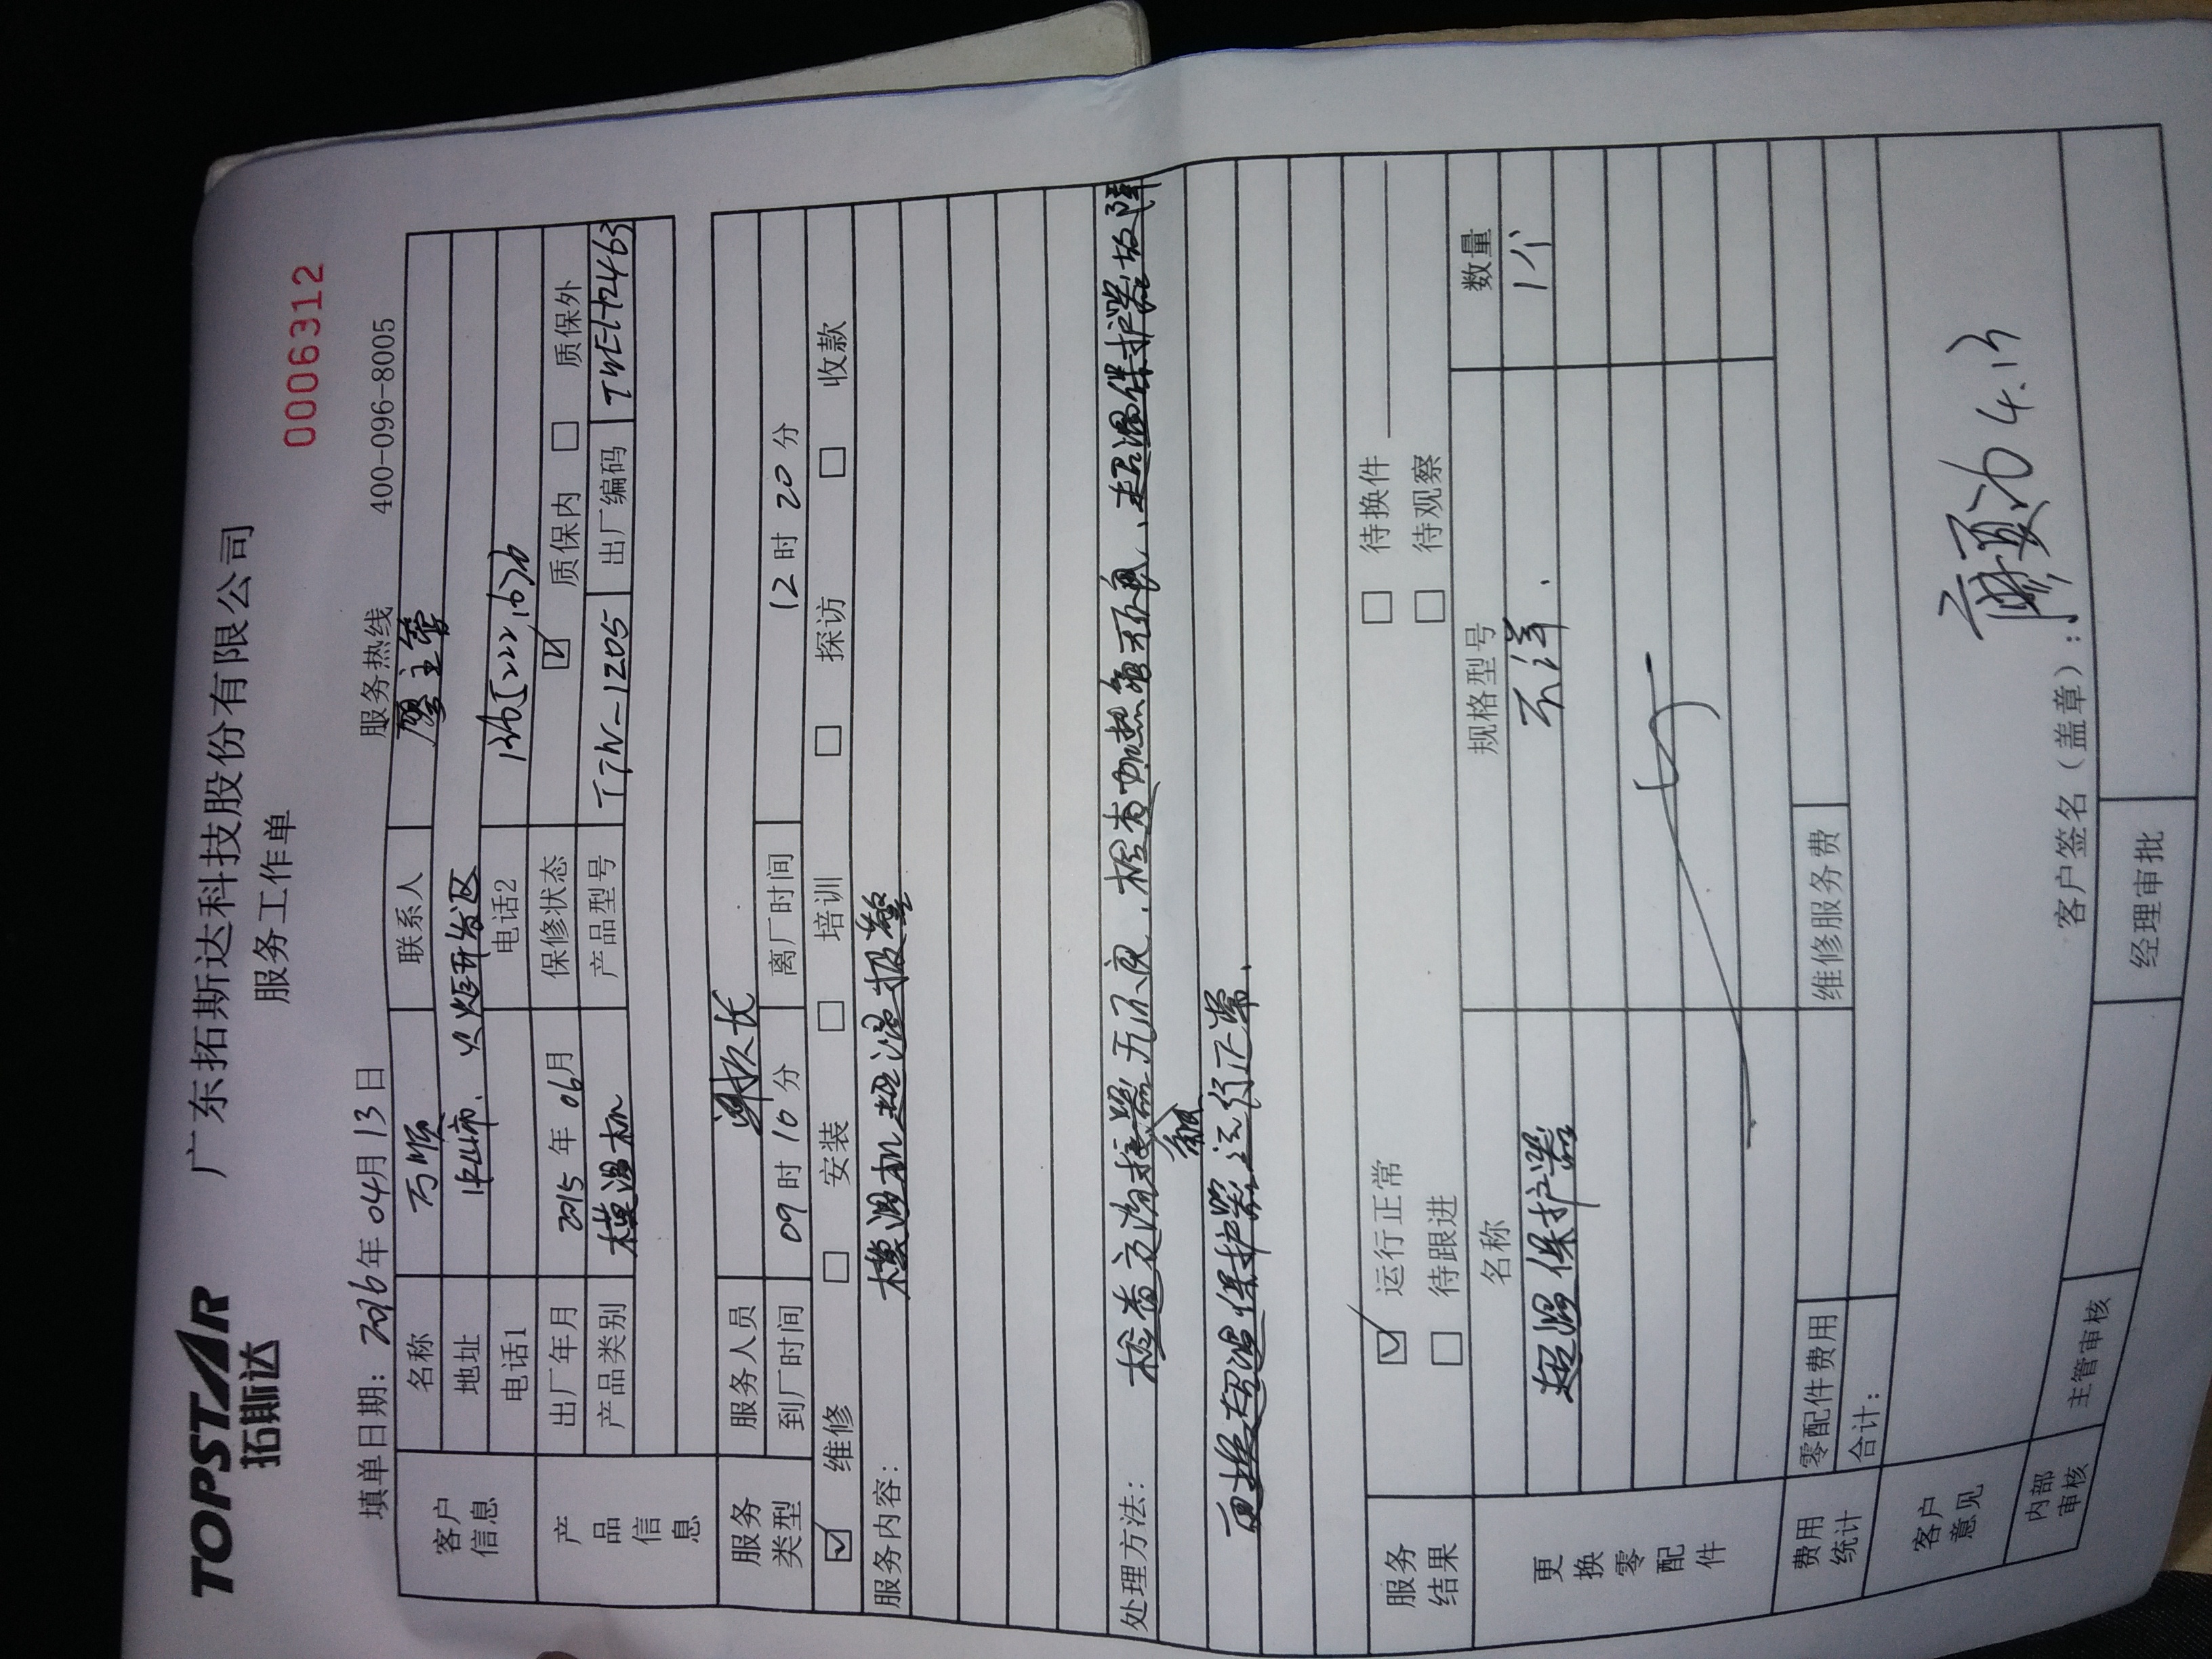 TOPSTAR
拓斯达
广东拓斯达科技股份有限公司
服务工作单
0006312
填单日期: 2016年04月13日 服务热线 400-096-8005
客户信息 名称 万顺 联系人 主管
地址 中山市、火炬开发区
电话1 电话2
产品信息 出厂年月 2015年06月 保修状态 ☑ 质保内 □ 质保外
产品类别 模温机 产品型号 TTW-1205 出厂编码
服务类型 服务人员
到厂时间 09时10分 离厂时间 12时20分
☑ 维修 □ 安装 □ 培训 □ 探访 □ 收款
服务内容: 模温机超温报警
处理方法: 检查交流接器无不良、检查加热 不良、超温保护器故障
更换超温保护器运行正常.
服务结果 ☑ 运行正常 □ 待换件
□ 待跟进 □ 待观察
更换零配件 名称 规格型号 数量
超温保护器 不详. 1个
费用统计 零配件费用 维修服务费
合计:
客户意见
客户签名(盖章): 4.13
内部审核 主管审核 经理审批